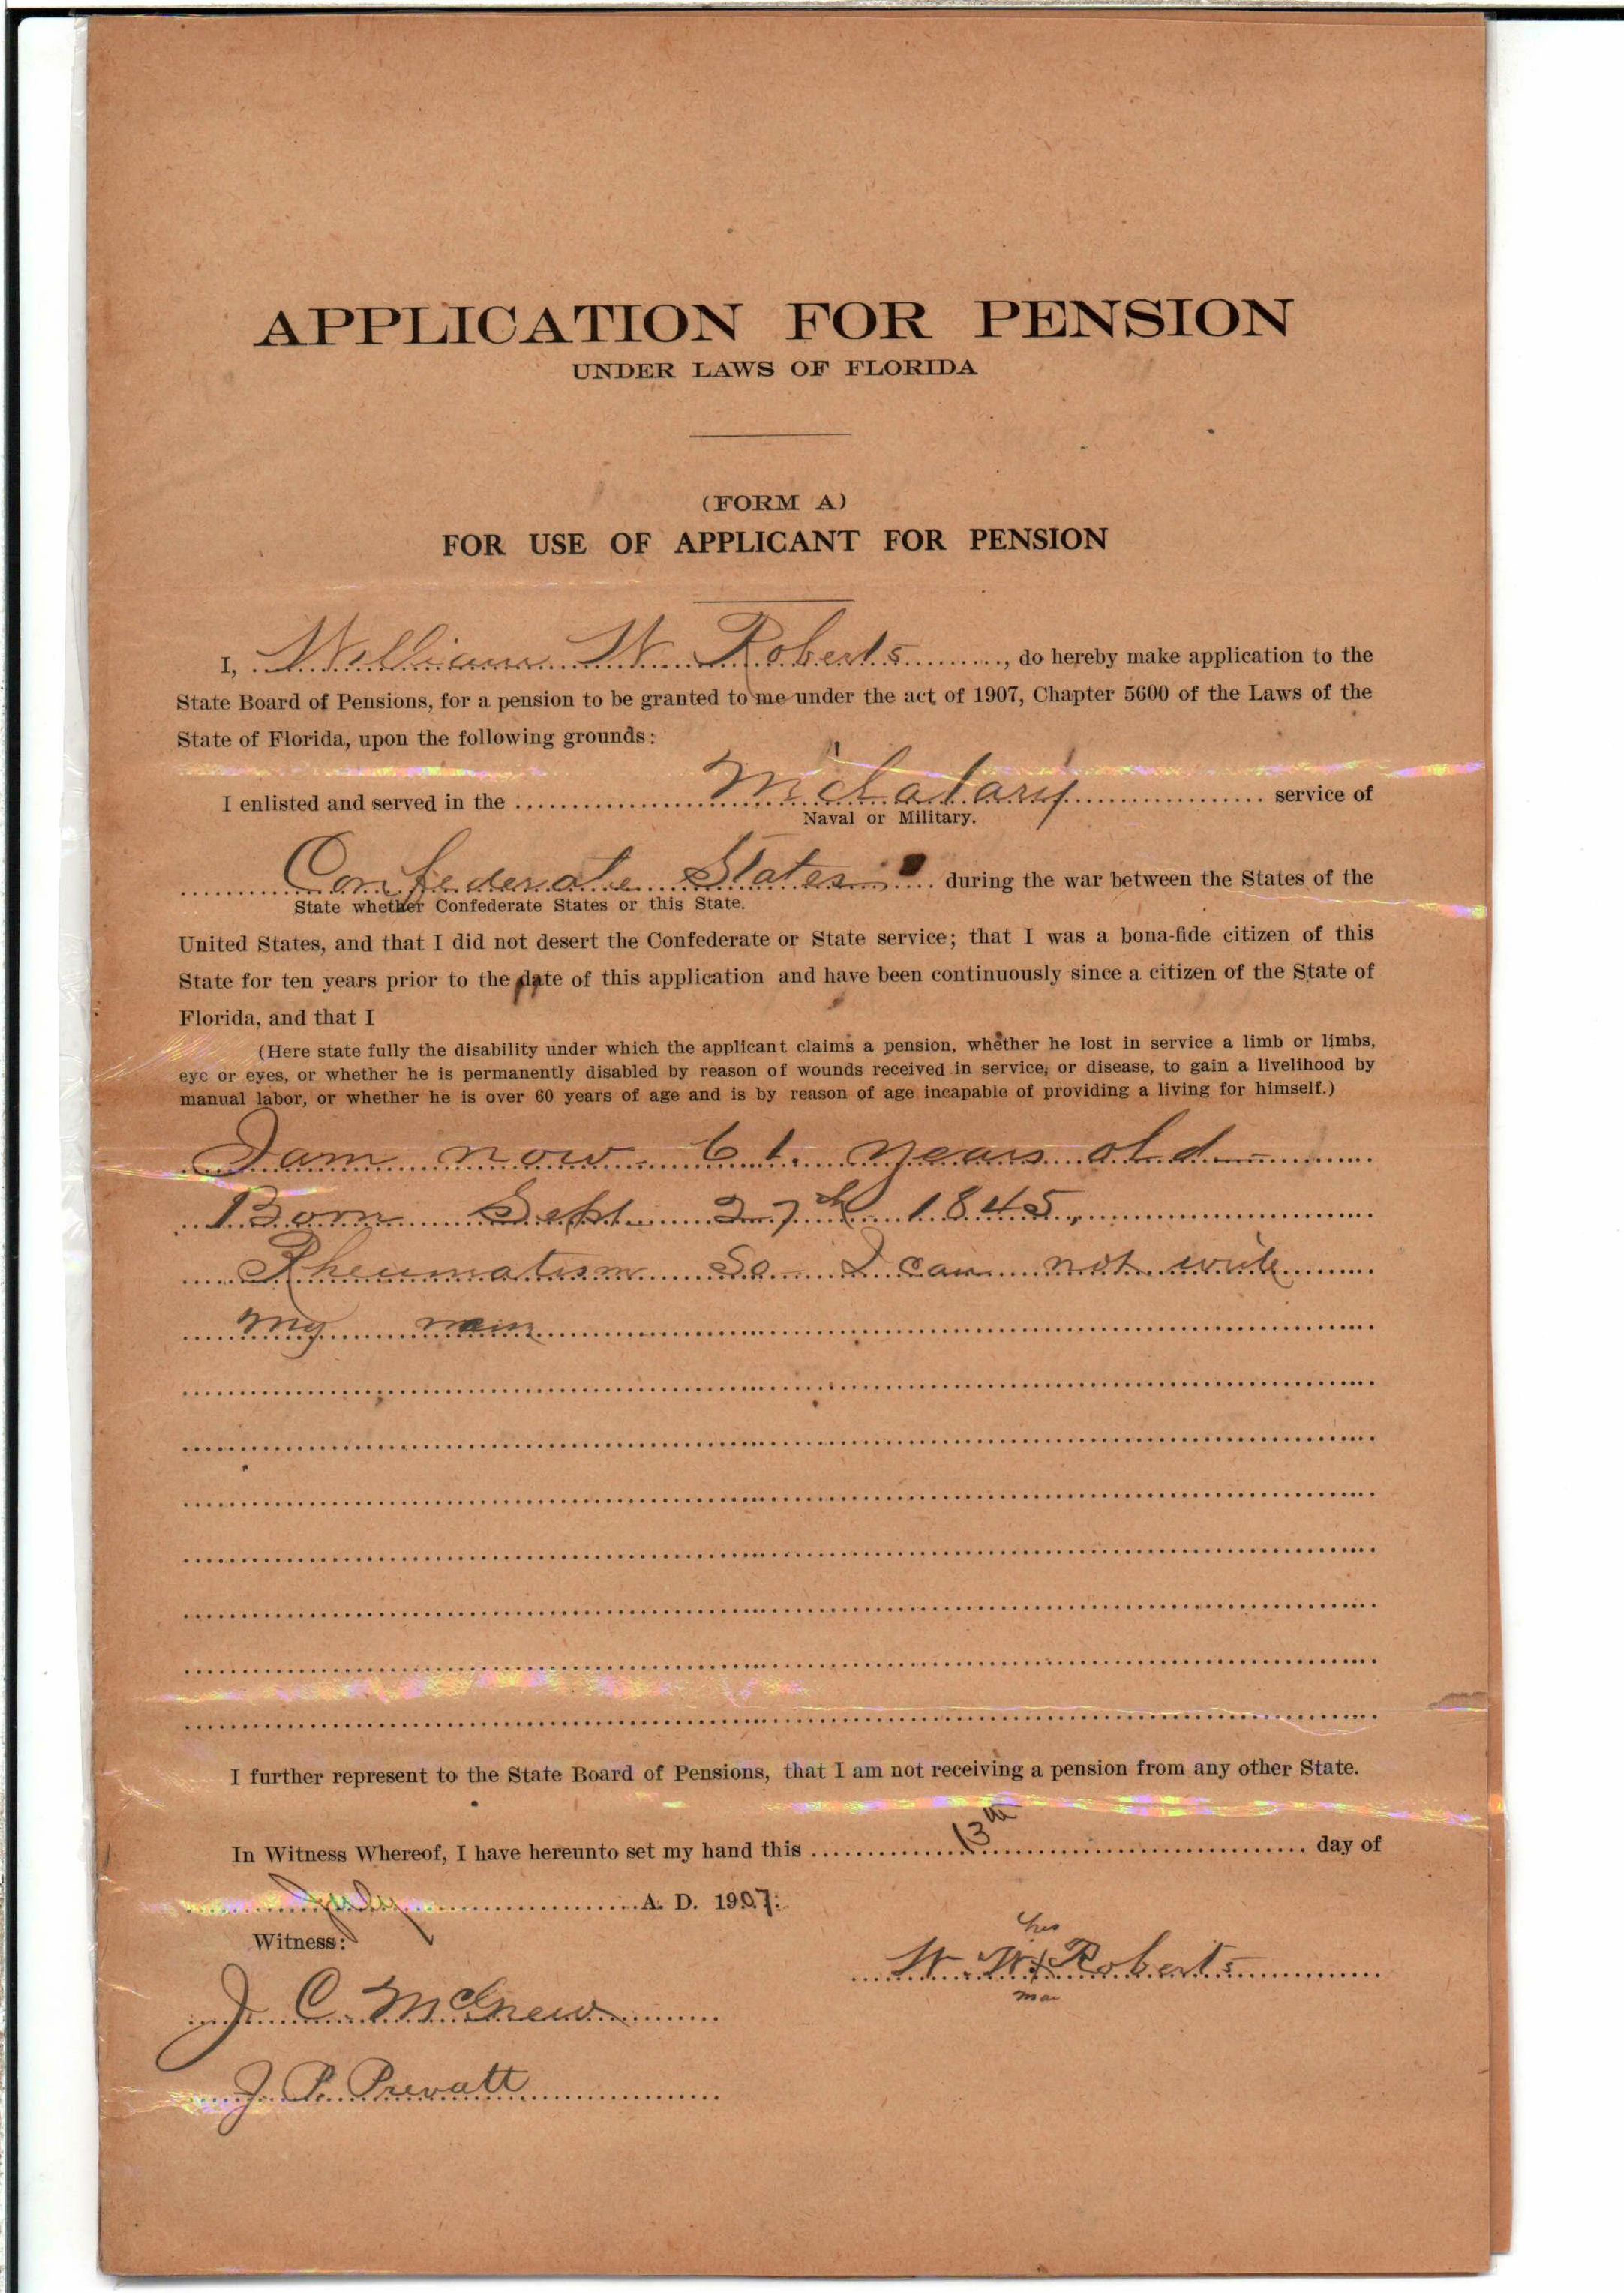 APPLICATION FOR PENSION
UNDER LAWS OF FLORIDA
(FORM A)
FOR USE OF APPLICANT FOR PENSION
I, William W. Roberts, do hereby make application to the
State Board of Pensions, for a pension to be granted to me under the act of 1907, Chapter 5600 of the Laws of the
State of Florida, upon the following grounds:
I enlisted and served in the Milatary service of
Naval or Military.
Confederate States during the war between the States of the
State whether Confederate States or this State.
United States, and that I did not desert the Confederate or State service; that I was a bona-fide citizen of this
State for ten years prior to the date of this application and have been continuously since a citizen of the State of
Florida, and that I
(Here state fully the disability under which the applicant claims a pension, whether he lost in service a limb or limbs,
eye or eyes, or whether he is permanently disabled by reason of wounds received in service, or disease, to gain a livelihood by
manual labor, or whether he is over 60 years of age and is by reason of age incapable of providing a living for himself.)
I am now 61 years old
Born Sept 27th 1845,
Rheumatism So I can not write
my
I further represent to the State Board of Pensions, that I am not receiving a pension from any other State.
In Witness Whereof, I have hereunto set my hand this 13th day of
July A. D. 1907:
Witness:
his
W. W. x Roberts
mar
J. C. McGrew
J. P. Prevatt